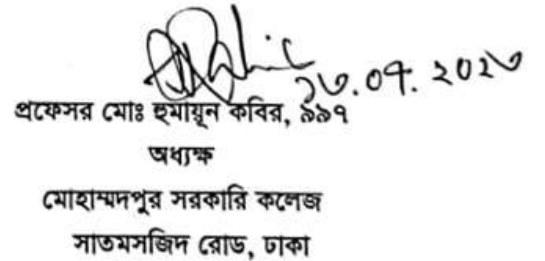 ২৩.০৭.২০২৩
প্রফেসর মোঃ হুমায়ূন কবির, ৯৯৭
অধ্যক্ষ
মোহাম্মদপুর সরকারি কলেজ
সাতমসজিদ রোড, ঢাকা